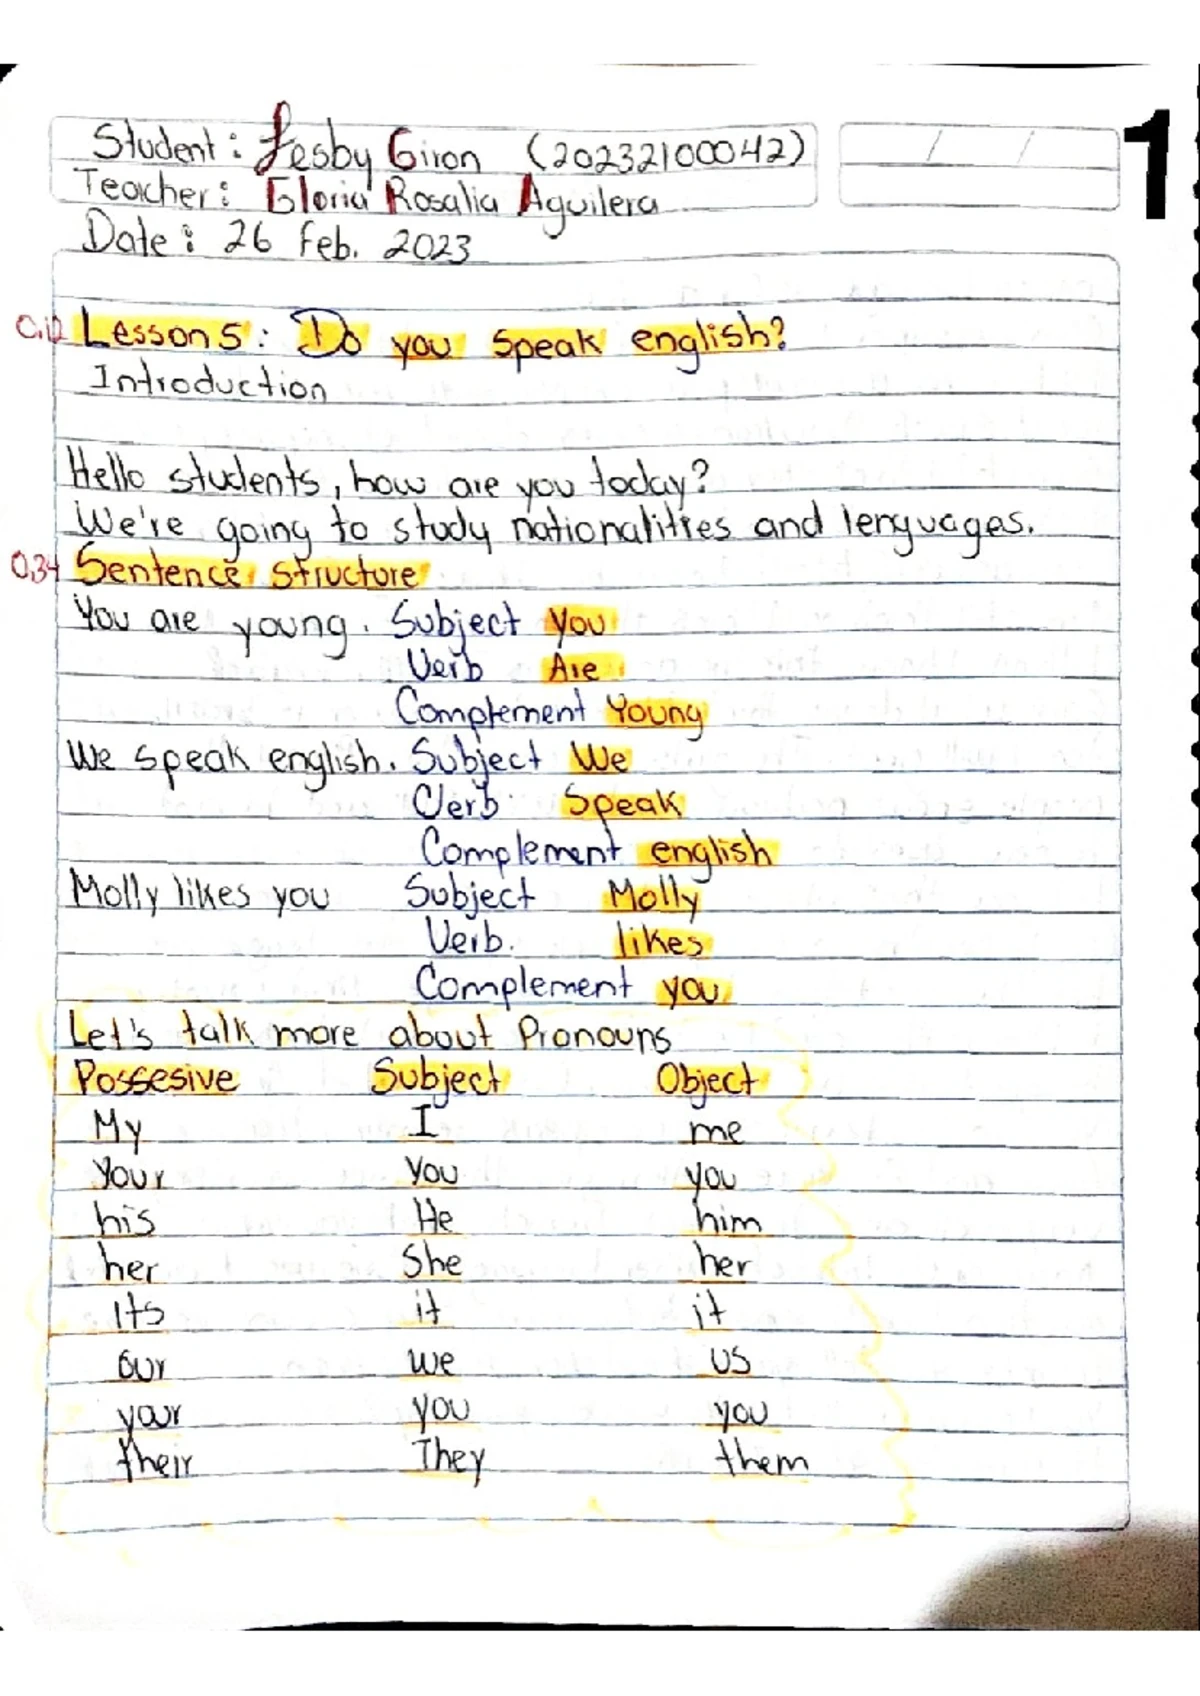 Student: Lesby Giron (20232100042)
1
Teacher: Gloria Rosalia Aguilera
Date: 26 Feb. 2023
0.12 Lesson 5: Do you speak english?
Introduction
Hello students, how are you today?
We're going to study nationalities and lenguages.
0.34 Sentence structure
You are young. Subject you
Verb Are
Complement Young
We speak english. Subject We
Verb Speak
Complement english
Molly likes you Subject Molly
Verb. likes
Complement you
Let's talk more about Pronouns
Possesive Subject Object
My I me
Your You you
his He him
her She her
Its it it
our we us
your you you
their They them